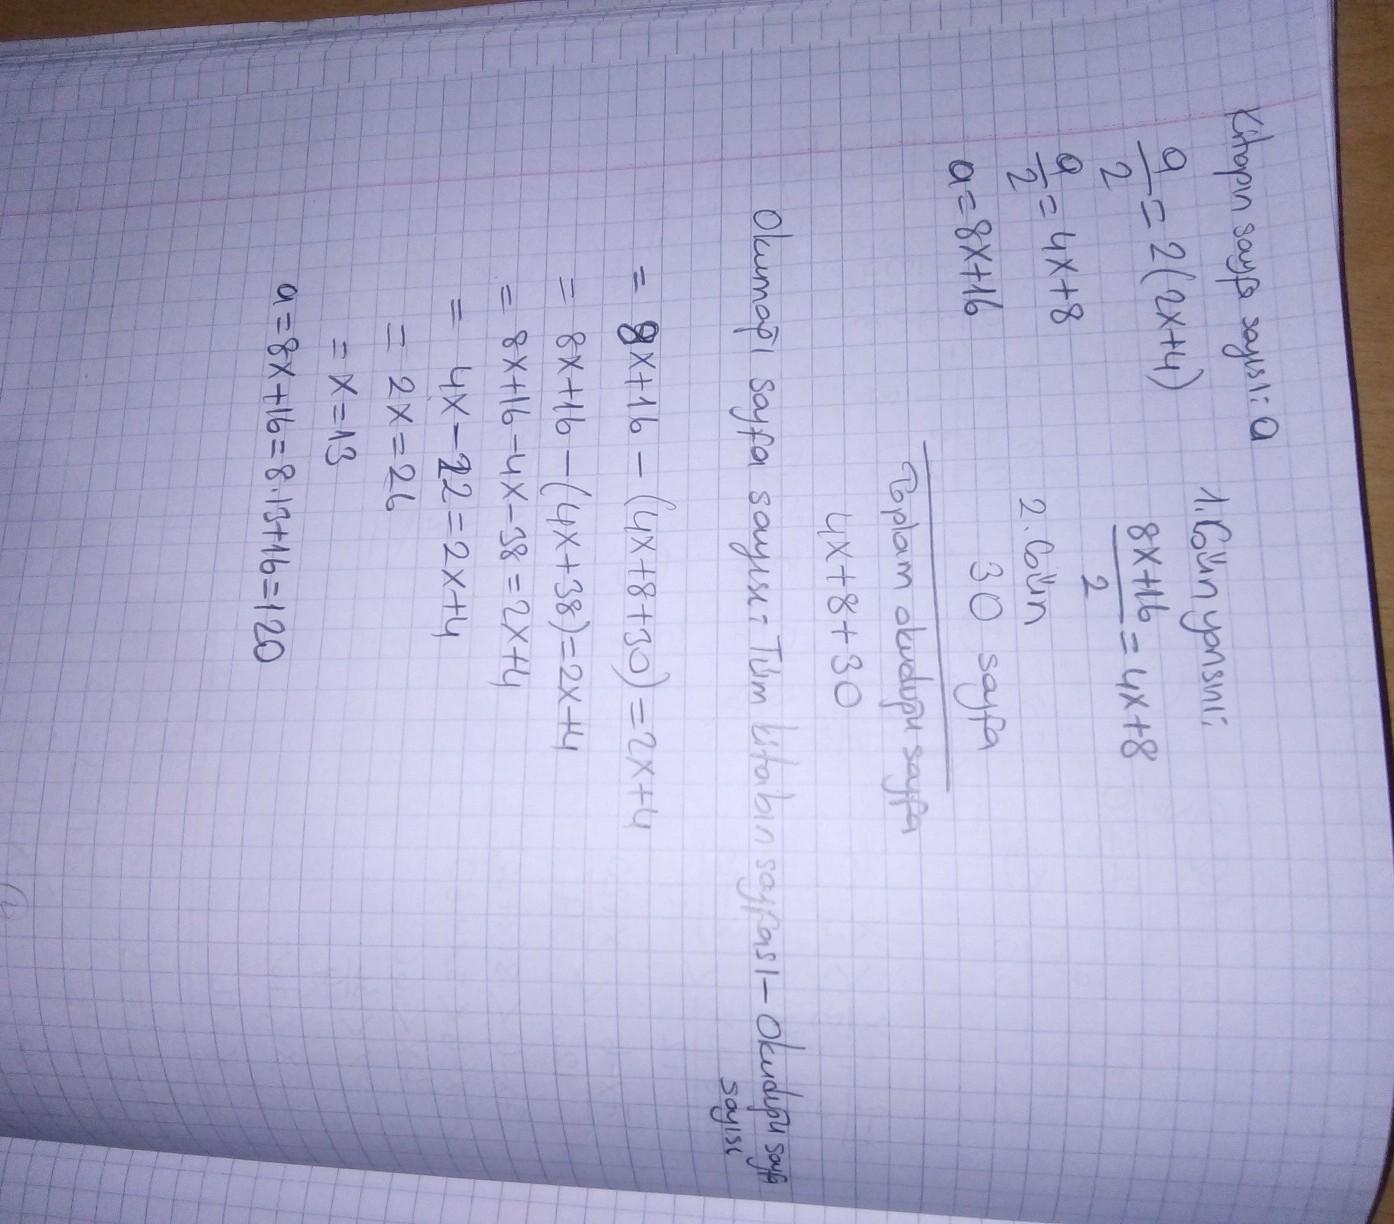 Kitapın sayfa sayısı: a
a/2 = 2(2x+4)
a/2 = 4x+8
a = 8x+16
1. Gün yarısını:
8x+16/2 = 4x+8
2. Gün
30 sayfa
Toplam okuduğu sayfa
4x+8+30
Okumadığı sayfa sayısı: Tüm kitabın sayfası - Okuduğu sayfa
sayısı
= 8x+16 - (4x+8+30) = 2x+4
= 8x+16 - (4x+38) = 2x+4
= 8x+16 - 4x - 38 = 2x+4
= 4x - 22 = 2x+4
= 2x = 26
= x = 13
a = 8x+16 = 8.13+16 = 120